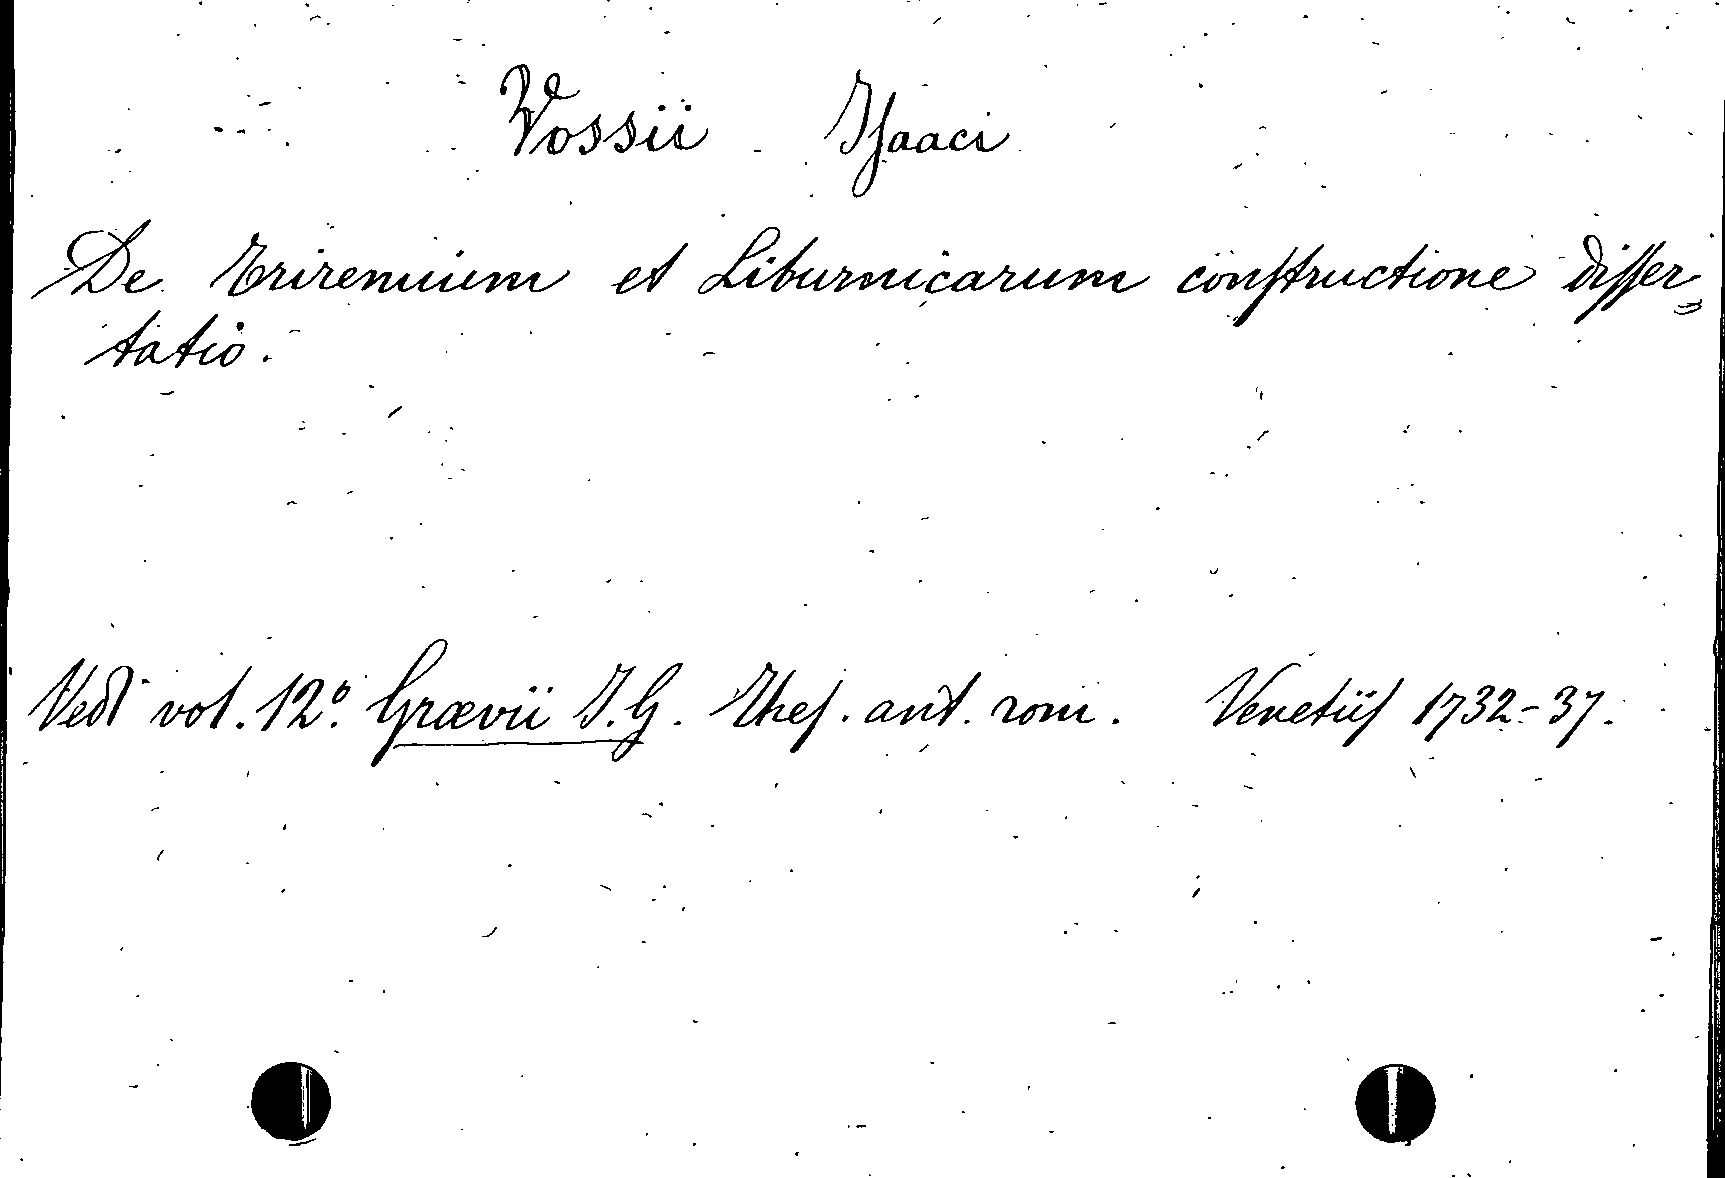 Vossii Iſaaci
De Triremium et Liburnicarum conſtructione diſſer=
tatio.
Vedi vol. 12º. Grævii J. G. Theſ. ant. rom. Venetiiſ 1732-37.